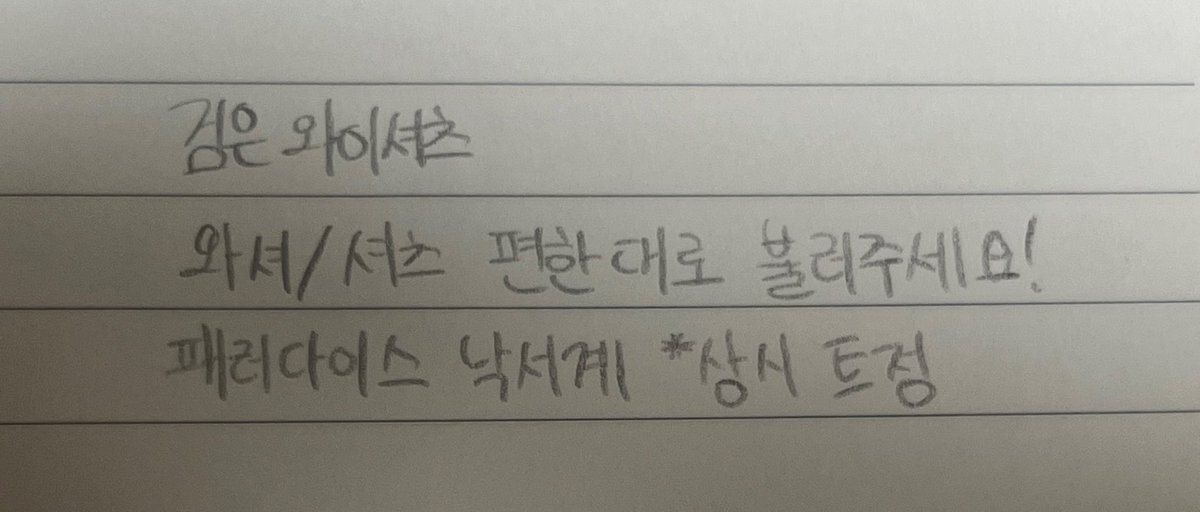 검은 와이셔츠
와셔/셔츠 편한대로 불러주세요!
패러다이스 낙서계 *상시 트정